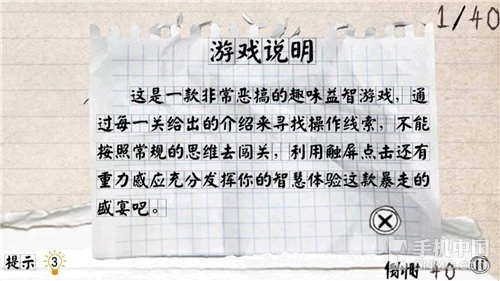 1/40
游戏说明
这是一款非常恶搞的趣味益智游戏，通
过每一关给出的介绍来寻找操作线索，不能
按照常规的思维去闯关，利用触屏点击还有
重力感应充分发挥你的智慧体验这款暴走的
盛宴吧。
提示 3
倒计时 40
手机中国